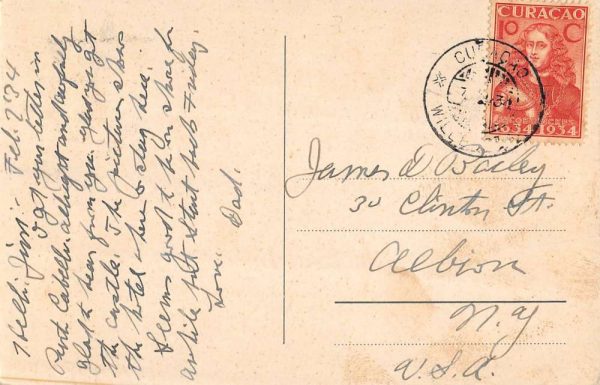 Hello Jim:- Feb. 2 '34
I got your letter in
Puerto Cabello allright and awfully
glad to hear from you. glad you got
the castle. The picture shows
the hotel where I stay here.
Seems good to be on shore for
awhile just start back Friday.
Love. Dad.
CURAÇAO
10 C
1634 1934
WILLEMSTAD
CURAÇAO
James D Bailey
30 Clinton St.
Albion
N.Y
U.S.A.